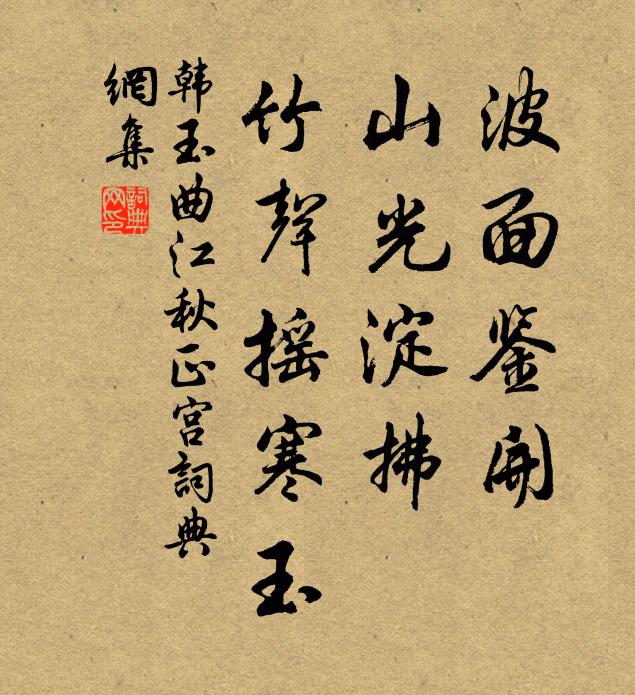 波面鉴开
山光淀拂
竹声摇寒玉
韩玉曲江秋正宫詞典
網集
詞典
网印